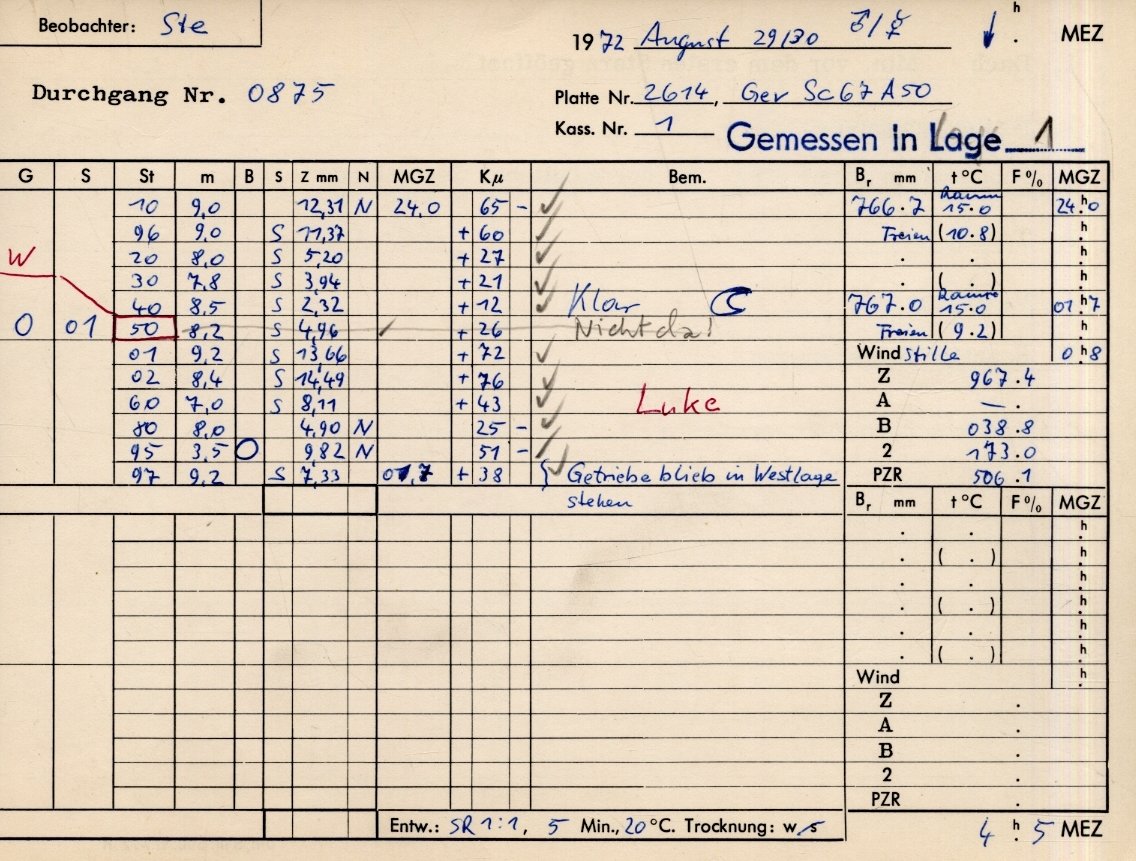 Beobachter: Ste
1972 August 29/30 ♂/☿ ↓ h . MEZ
Durchgang Nr. 0875
Platte Nr. 2614, Gev Sc67A50
Kass. Nr. 1
Gemessen in Lage 1
G S St m B S Z mm N MGZ Kμ Bem. Br mm t°C F% MGZ
10 9,0 12,31 N 24.0 65 - ✓ 766.7 Raum 15.0 24h0
96 9,0 S 11,37 + 60 ✓ Freien (10.8) h
20 8,0 S 5,20 + 27 ✓ . . h
W 30 7,8 S 3,94 + 21 ✓ ( . ) h
40 8,5 S 2,32 + 12 ✓ Klar ☾ 767.0 Raum 15.0 01h7
0 01 50 8,2 S 4,96 ✓ + 26 Nicht da! Freien (9.2) h
01 9,2 S 13,66 + 72 ✓ Wind stille 0h8
02 8,4 S 14,49 + 76 ✓ Z 967.4
60 7,0 S 8,11 + 43 ✓ Luke A — .
80 8,0 4,90 N 25 - ✓ B 038.8
95 3,5 O 9,82 N 51 - ✓ 2 173.0
97 9,2 S 7,33 01,7 + 38 } ✓ Getriebe blieb in Westlage PZR 506.1
stehen
Br mm t°C F% MGZ
. . h
. ( . ) h
. . h
. ( . ) h
. . h
. ( . ) h
Wind h
Z .
A .
B .
2 .
PZR .
Entw.: SR 1:1, 5 Min., 20 °C. Trocknung: w/s
4 h 5 MEZ